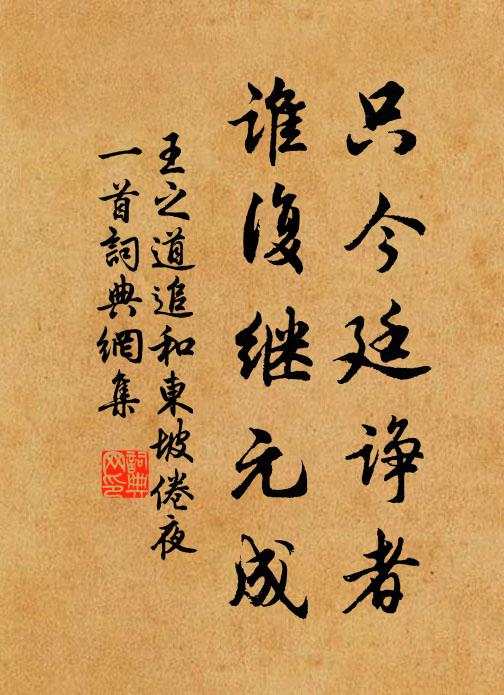 只今廷诤者
谁复继元成
王之道追和東坡倦夜
一首詞典網集
詞典
网印